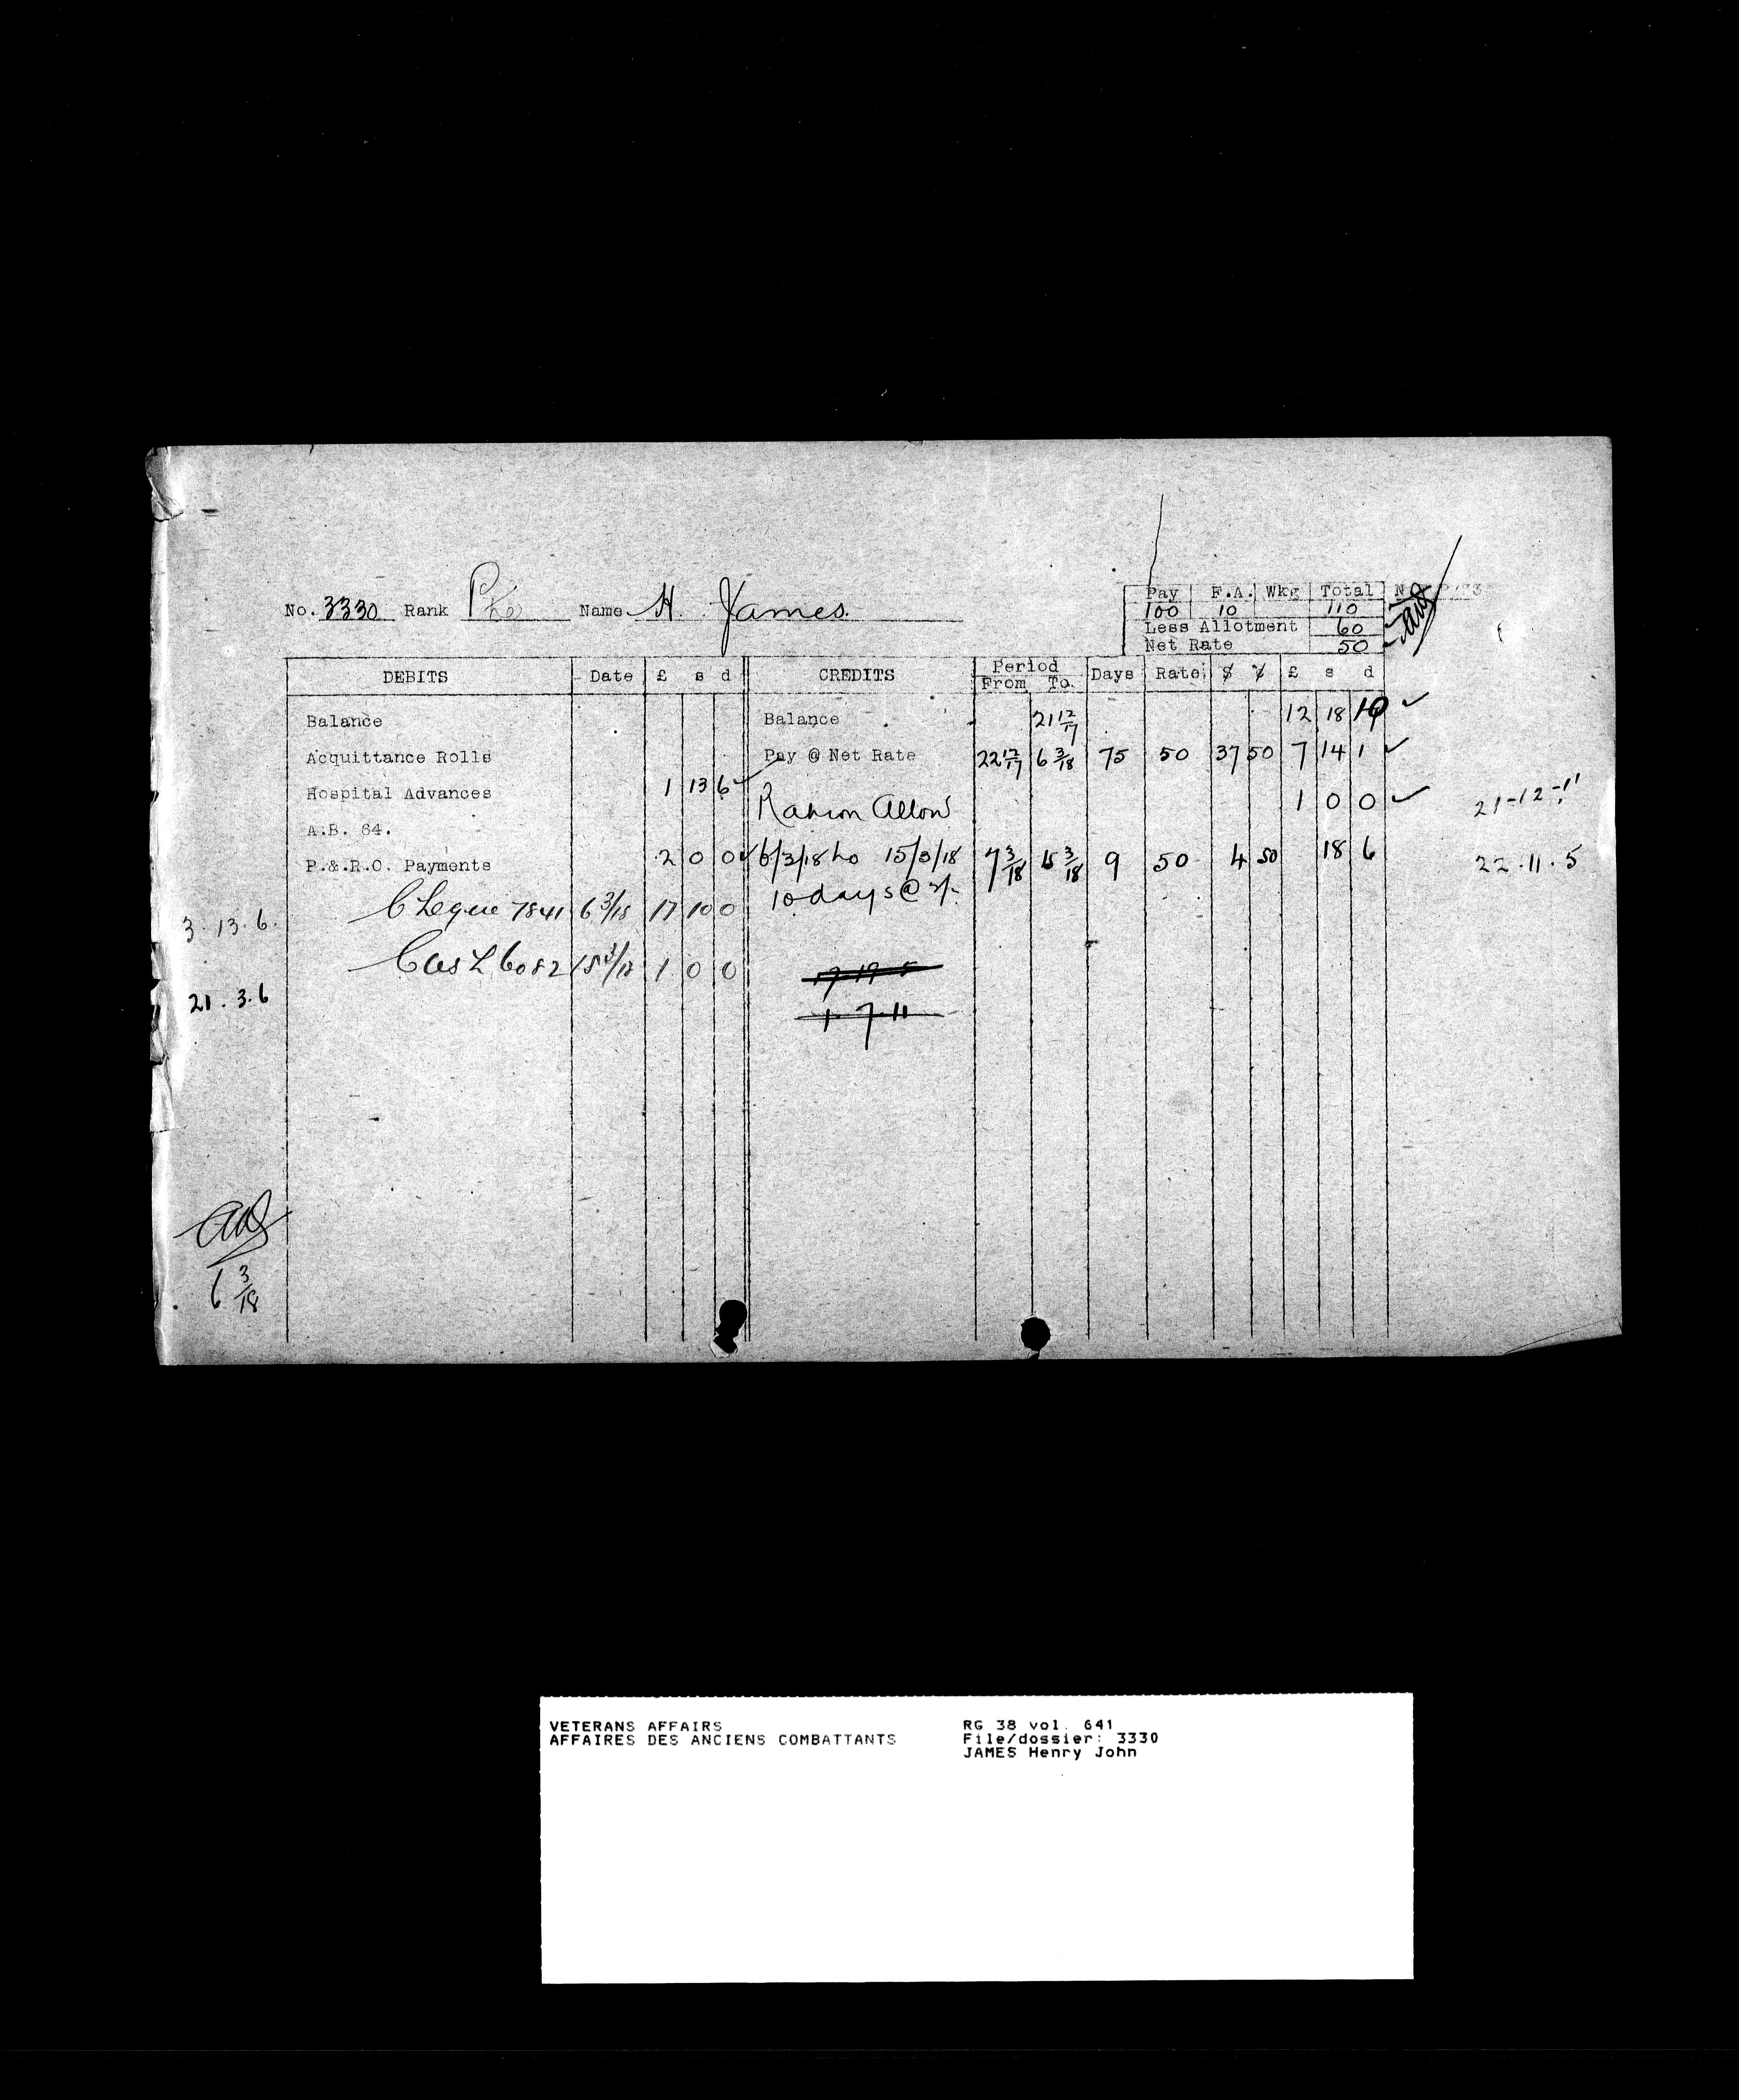 No. 3330 Rank Pte Name H. James.
Pay F.A. Wkg Total
100 10 110
Less Allotment 60
Net Rate 50
DEBITS Date £ s d CREDITS Period From To Days Rate $ ¢ £ s d
Balance Balance 21 12/17 12 18 10 ✓
Acquittance Rolls Pay @ Net Rate 22 12/17 6 3/18 75 50 37 50 7 14 1 ✓
Hospital Advances 1 13 6 ✓ Ration Allow 1 0 0 ✓ 21-12-11
A.B. 64.
P.&.R.C. Payments 2 0 0 ✓ 6/3/18 to 15/3/18 7 3/18 15 3/18 9 50 4 50 18 6 22.11.5
10 days @ 2/-
3.13.6. Cheque 7841 6 3/18 17 10 0
Cash 6082 15 3/18 1 0 0
17-19-5
21.3.6
1-7-11
6 3/18
VETERANS AFFAIRS
AFFAIRES DES ANCIENS COMBATTANTS
RG 38 vol. 641
File/dossier: 3330
JAMES Henry John